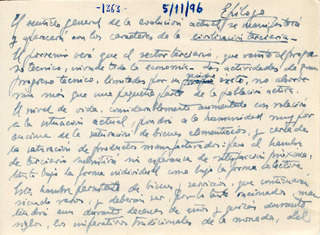 -1363-
5/11/96
Epílogo
El sentido general de la evolución actual, se manifestará
y aparecerá con los caracteres de la civilización terciaria.
El porvenir verá que el sector terciario, que resiste al progreso
técnico, invade toda la economía. Las actividades de gran
progreso técnico, limitadas por su mismo éxito, no absorberán
más que una pequeña parte de la población activa.
El nivel de vida, considerablemente aumentado con relación
a la situación actual, pondrá a la humanidad muy por
encima de la saturación de bienes alimenticios, y cerca de
la saturación de productos manufacturados; pero el hambre
de terciario subsistirá sin esperanza de satisfacción próxima,
tanto bajo la forma individual como bajo la forma colectiva.
Esta hambre permanente de bienes y servicios, que continuarán
siendo raros, y deberán ser, por lo tanto racionados, mantendrá
aun durante decenas de años y quizás durante
siglos, los imperativos tradicionales de la moneda, del